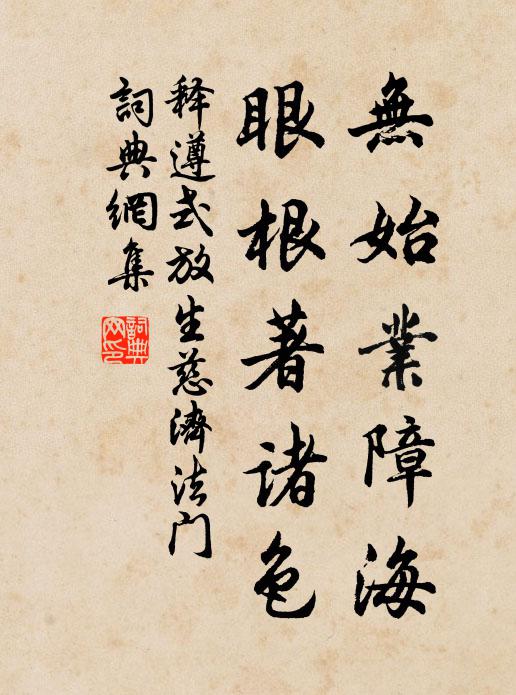 無始業障海
眼根著諸色
释遵式放生慈濟法门
詞典網集
詞典網印